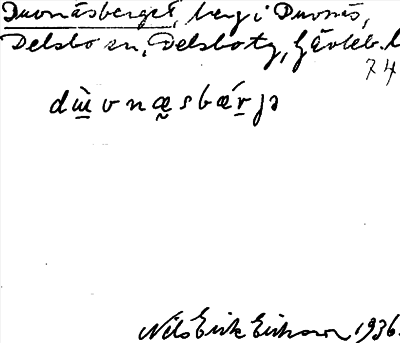 Duvnäsberget, berg i Duvnäs,
Delsbo sn, Delsbo tg, Gävleb. l
74
dùvnæsbǽrjə
Nils Erik Erikson 1936.